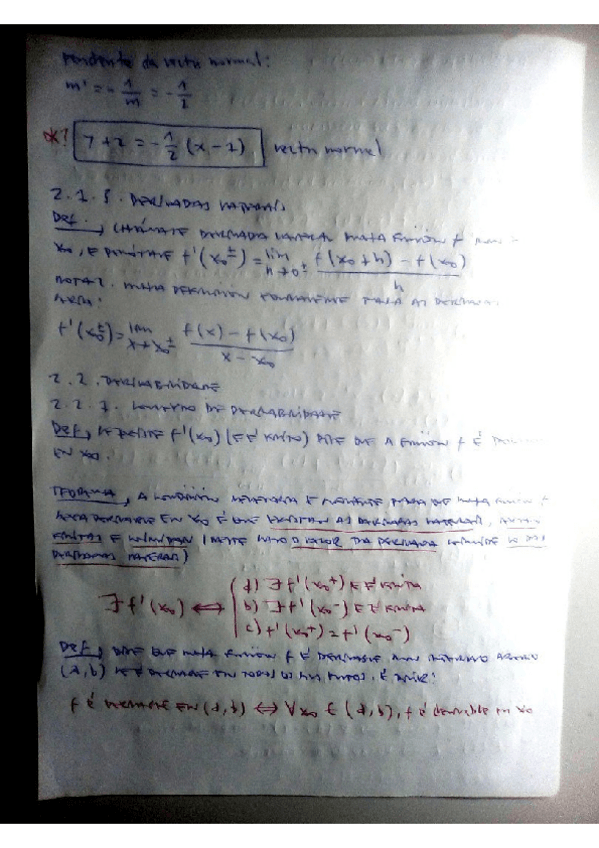 pendente da recta normal:
m' = - 1/m = - 1/2
*! y + 2 = - 1/2 (x - 1) recta normal
2.1.5. DERIVADAS LATERAIS
Def. CHÁMASE DERIVADA LATERAL DUNHA FUNCIÓN f
x₀, E DENÓTASE f'(x₀^±) = lim h→0^± (f(x₀+h) - f(x₀))/h
NOTA: DEFINICIÓN EQUIVALENTE PARA AS DERIVADAS
f'(x₀^±) = lim x→x₀^± (f(x) - f(x₀))/(x - x₀)
2.2. DERIVABILIDADE
2.2.1. CONCEPTO DE DERIVABILIDADE
Def, SE EXISTE f'(x₀) (E É FINITO) DISE QUE A FUNCIÓN f É
EN x₀.
TEOREMA, A CONDICIÓN NECESARIA E SUFICIENTE PARA QUE UNHA FUNCIÓN f
SEXA DERIVABLE EN x₀ É QUE EXISTAN AS DERIVADAS LATERAIS, SEXAN
FINITAS E COINCIDAN (NESTE CASO O VALOR DA DERIVADA COINCIDE
DERIVADAS LATERAIS)
∃ f'(x₀) ⟺
a) ∃ f'(x₀⁺) E É FINITA
b) ∃ f'(x₀⁻) E É FINITA
c) f'(x₀⁺) = f'(x₀⁻)
Def, DISE QUE UNHA FUNCIÓN f É DERIVABLE NUN INTERVALO ABERTO
(a, b) SE É DERIVABLE EN TODOS OS SEUS PUNTOS, É DICIR:
f É DERIVABLE EN (a, b) ⟺ ∀ x₀ ∈ (a, b), f É DERIVABLE EN x₀